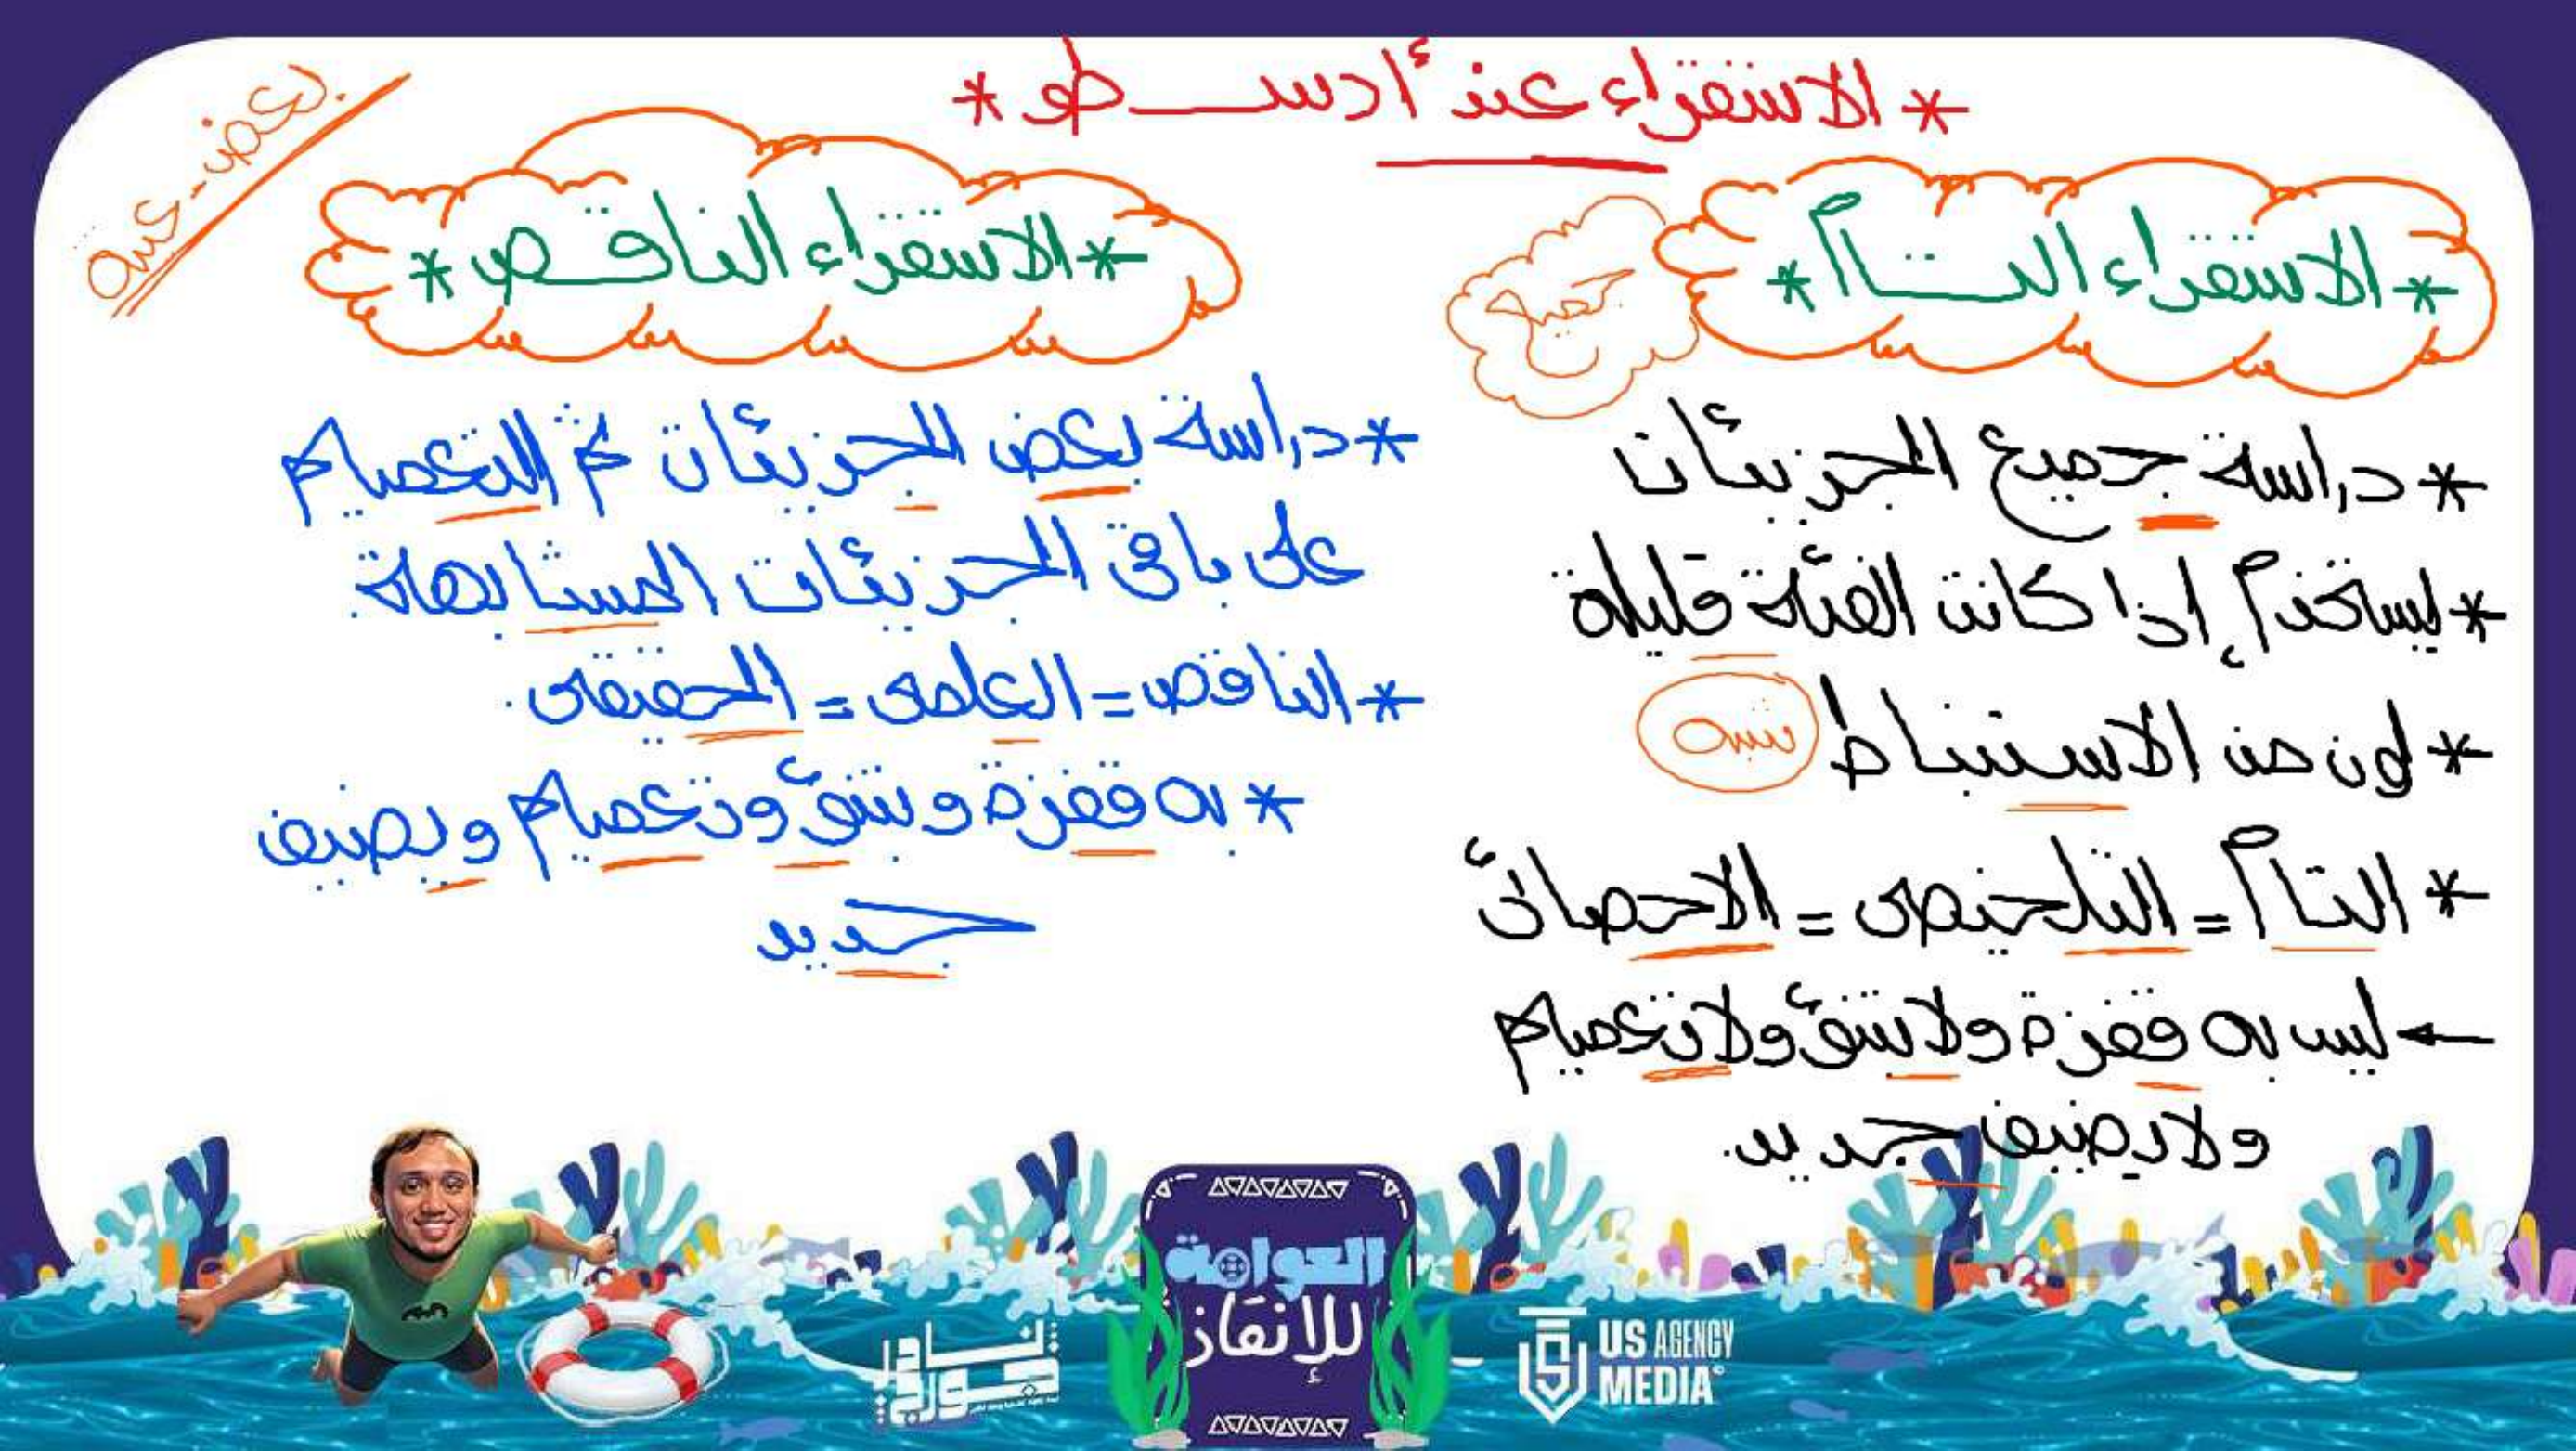 * الاستقراء عند أرسطو *
* الاستقراء التام *
* دراسة جميع الجزيئات
* يستخدم إذا كانت الفئة قليلة
* لون من الاستنباط
* التام = التلخيصى = الاحصائى
← ليس به قفزة ولا تنبؤ ولا تعميم
ولا يضيف جديد
بعض - عينة
* الاستقراء الناقص *
* دراسة بعض الجزيئات ثم التعميم
على باقى الجزيئات المتشابهة
* الناقص = العلمى = الحقيقى
* به قفزة وتنبؤ وتعميم ويضيف
جديد
العوامة
للإنقاذ
US AGENCY
MEDIA